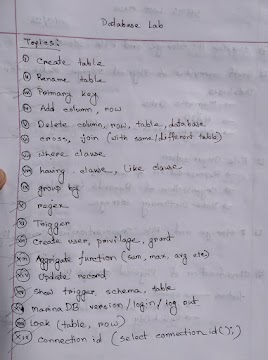 Database Lab
Topics:
(i) Create table
(ii) Rename table
(iii) Primary key
(iv) Add column, row
(v) Delete column, row, table, database
(vi) cross, join (with same/different table)
(vii) where clause
(viii) having clause, like clause
(ix) group by
(x) regex
(xi) Trigger
(xii) Create user, privilage, grant
(xiii) Aggrigate function (sum, max, avg etc)
(xiv) Update record
(xv) Show trigger, schema, table
(xvi) maria DB version/login/log out
(xvii) Lock (table, row)
(xviii) connection id (select connection id();)